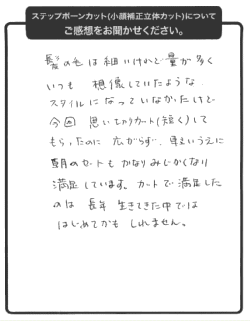 ステップボーンカット(小顔補正立体カット)について
ご感想をお聞かせください。
髪の毛は細いけれど量が多く
いつも 想像していたような
スタイルになっていなかったけど
今回 思い切りカット(短く)して
もらったのに 広がらず、
朝のセットもかなりみじかくなり
満足しています。カットで満足した
のは 長年 生きてきた中では
はじめてかも しれません。